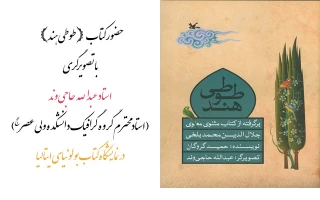 حضور کتاب 《طوطی هند》
با تصویرگری
استاد عبدالله حاجی‌وند
(استاد محترم گروه گرافیک دانشکده ولی عصر (عج))
در نمایشگاه کتاب بولونیای ایتالیا
طوطی
هند
برگرفته از کتاب مثنوی معنوی
جلال‌الدین محمد بلخی
نویسنده: حمید گروگان
تصویرگر: عبدالله حاجی‌وند